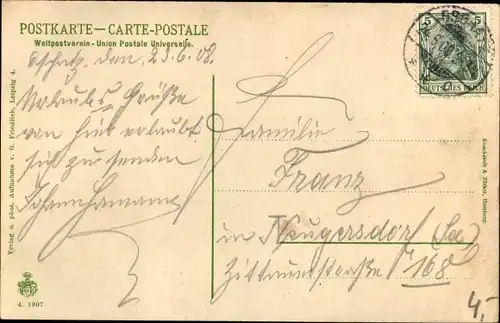 POSTKARTE — CARTE-POSTALE
Weltpostverein - Union Postale Universelle.
Oschatz, den 23.6.08.
Urlaubs Grüße
von hier erlaubt
sich zu senden
Johann
Familie
Franz
in Neugersdorf (Sa)
Zittauerstraße 168
5 5
DEUTSCHES REICH
Verlag u. phot. Aufnahme v. G. Friedrich, Leipzig 4.
Knackstedt & Näther, Hamburg.
4. 1907
4,-